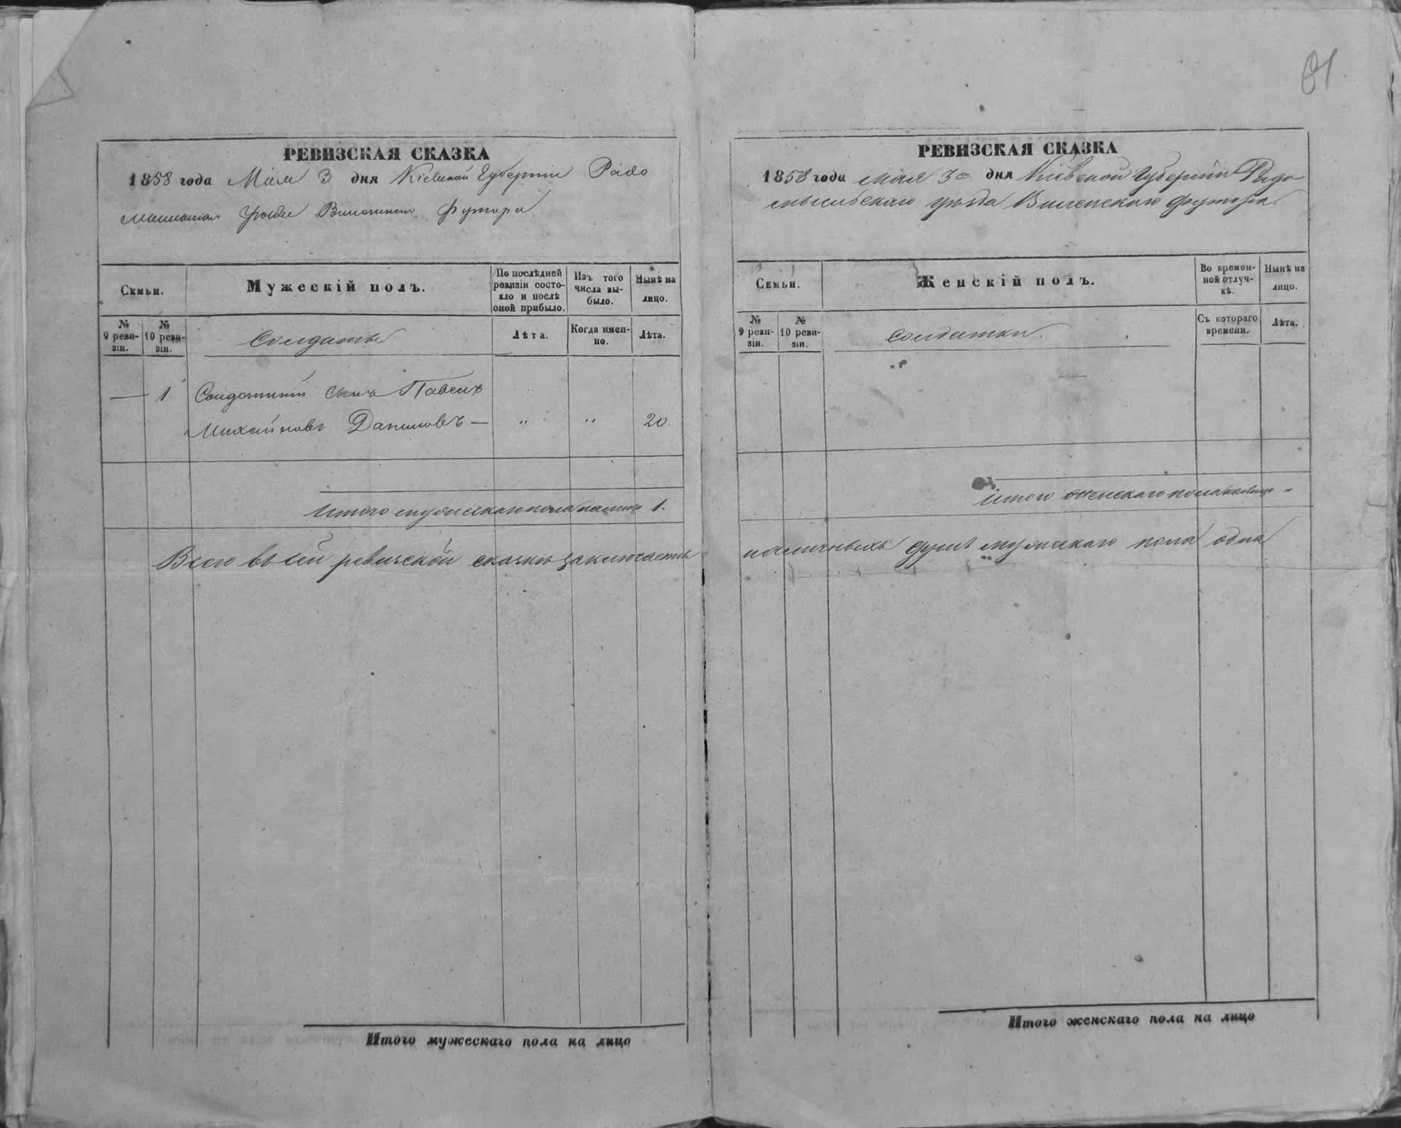 81
РЕВИЗСКАЯ СКАЗКА
1858 года Мая 3 дня Кіевской Губерніи Радо
мысльскаго уѣзда Виленскаго футора
Семьи.
Мужескій полъ.
По послѣдней ревизіи состояло и послѣ оной прибыло.
Изъ того числа выбыло.
Нынѣ на лицо.
№ 9 ревизіи.
№ 10 ревизіи.
Солдаты
Лѣта.
Когда именно.
Лѣта.
— 1 Солдатскій сынъ Павелъ
Михайловъ Даниловъ — " " 20
Итого мужескаго пола налицо 1.
Всего въ сей ревизской сказкѣ заключается
Итого мужескаго пола на лицо
РЕВИЗСКАЯ СКАЗКА
1858 года мая 3 дня Кіевской Губерніи Радо
мысльскаго уѣзда Вилепскаго футора
Семьи.
Женскій полъ.
Во временной отлучкѣ.
Нынѣ на лицо.
№ 9 ревизіи.
№ 10 ревизіи.
солдатки
Съ котораго времени.
Лѣта.
Итого женскаго пола налицо -
наличныхъ душъ мужескаго пола одна
Итого женскаго пола на лицо